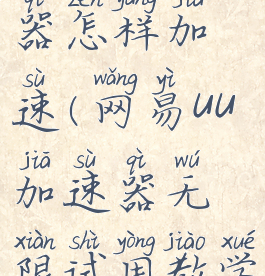 qì zěn yàng jiā
器怎样加
sù wǎng yì
速(网易uu
jiā sù qì wú
加速器无
xiàn shì yòng jiào xué
限试用教学